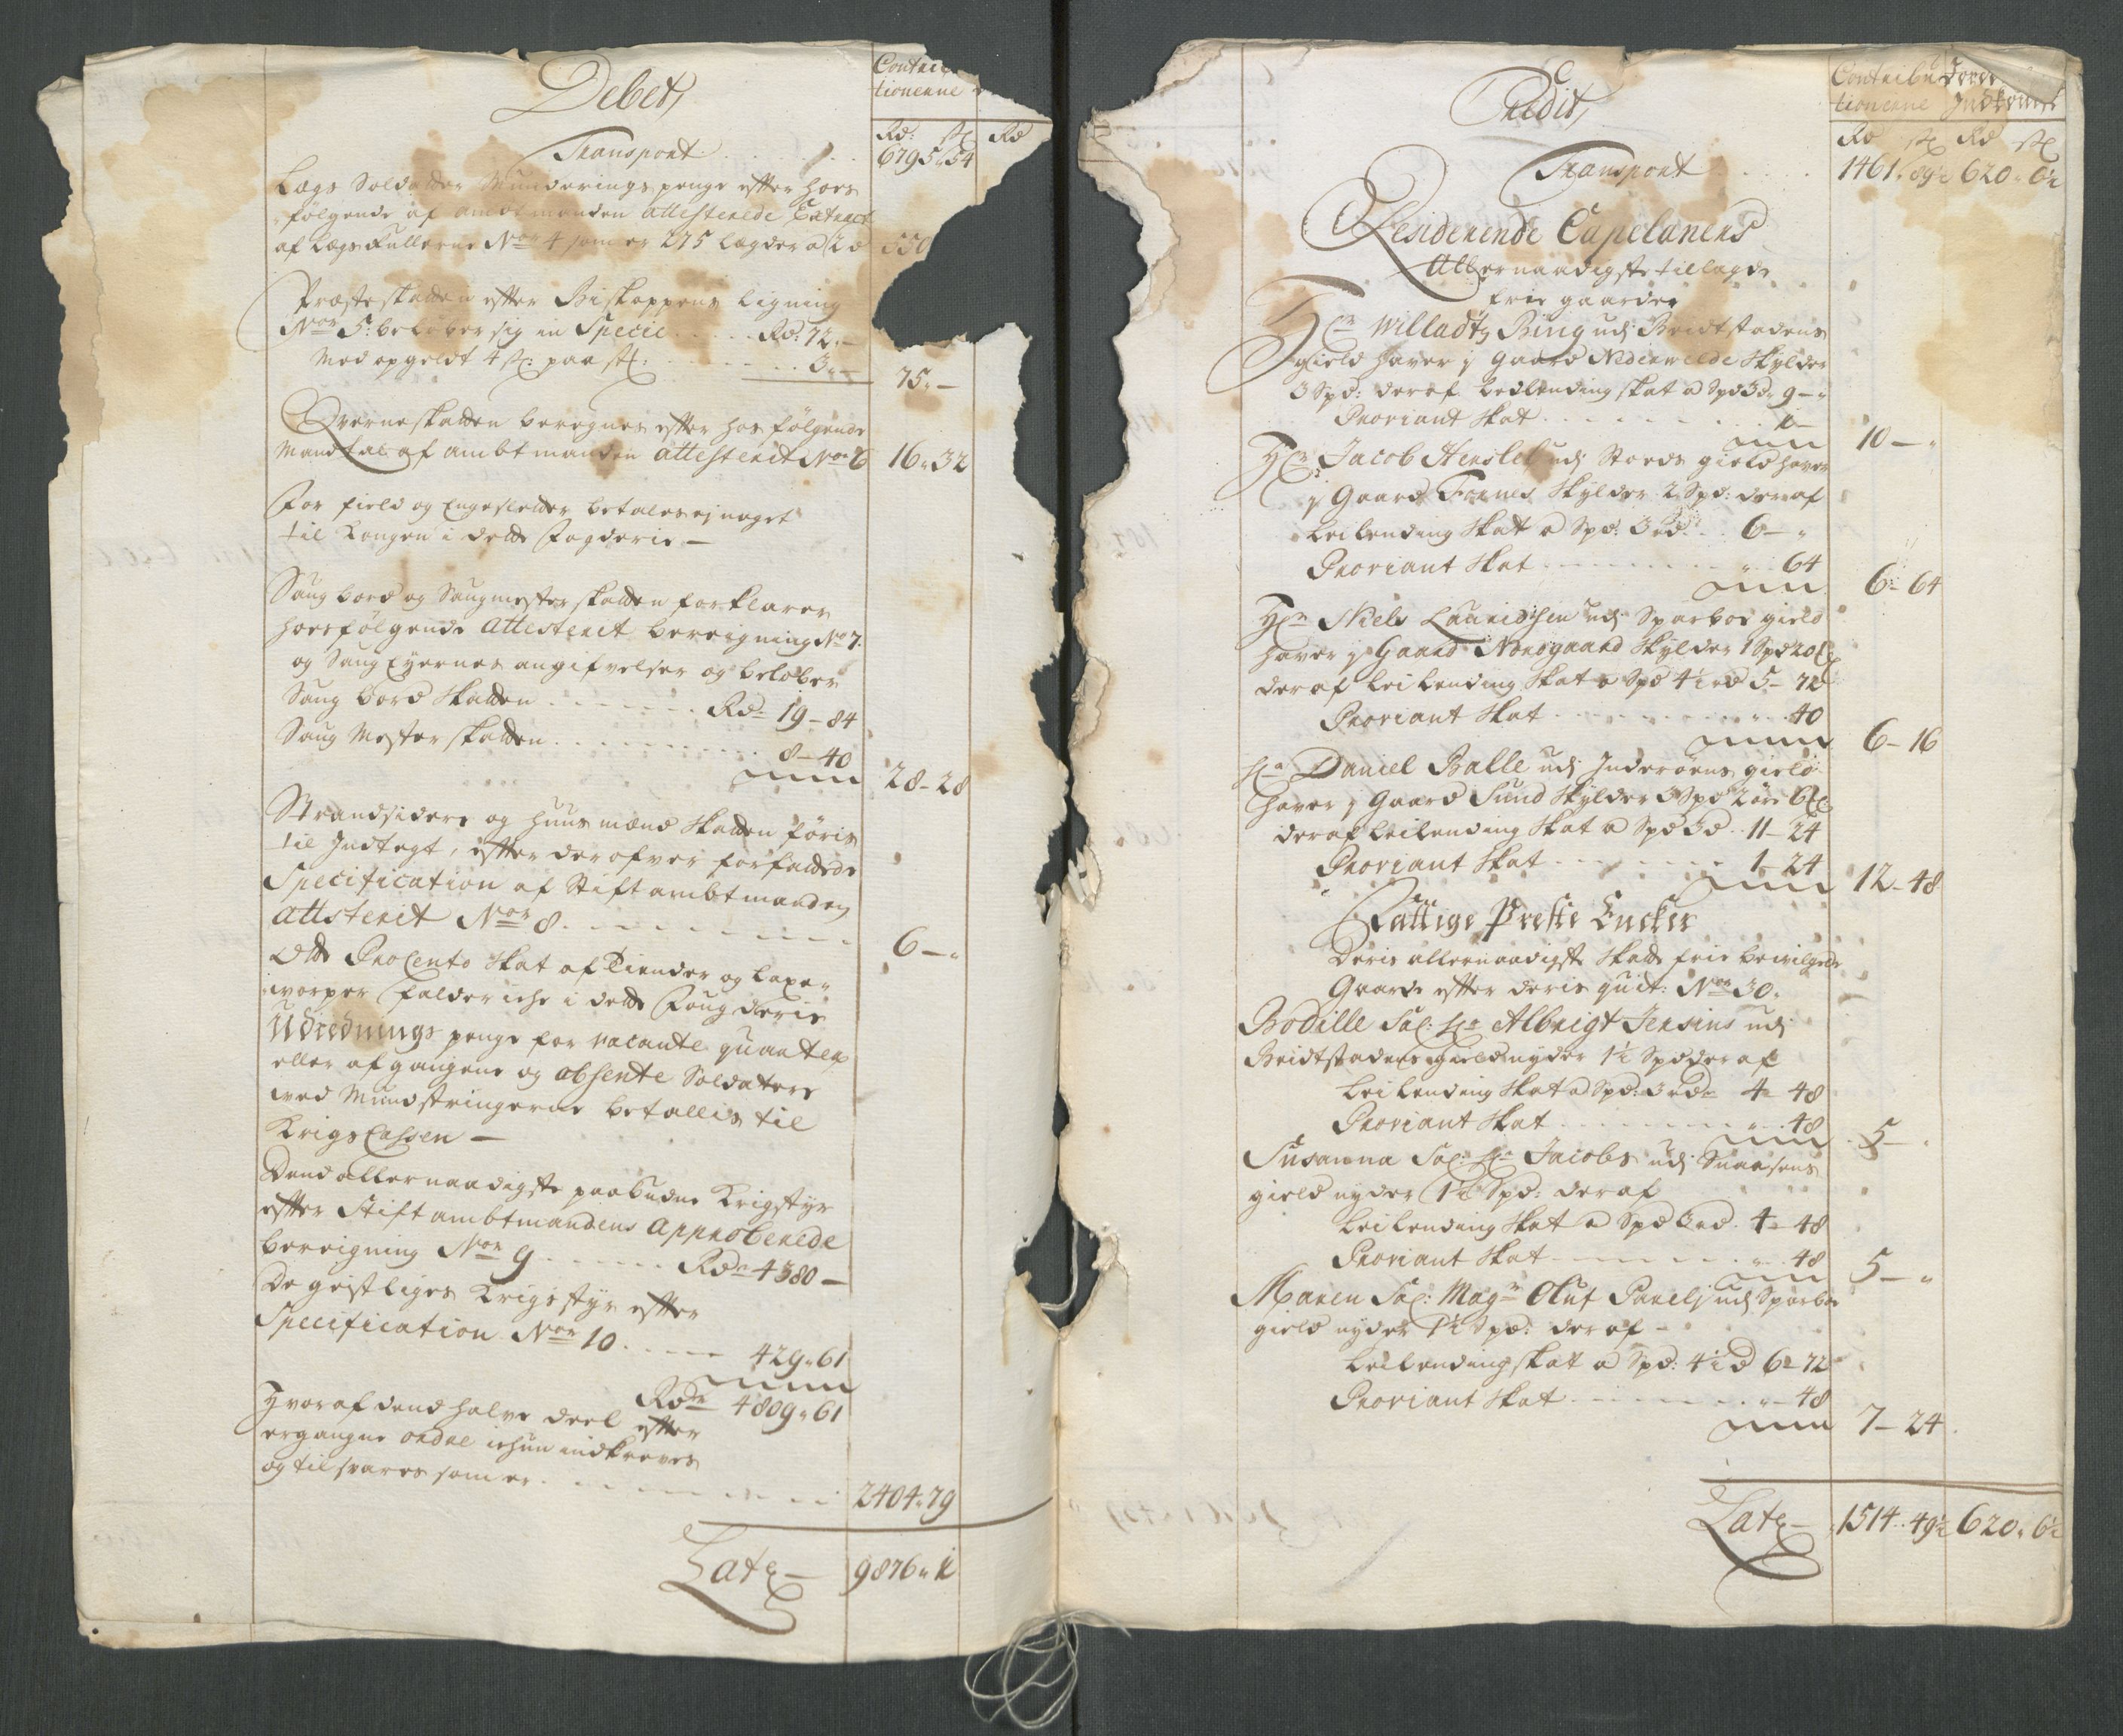 Debet
Contri
tionerne
Rd: sk Rd
Transport . . . . . 6795„54
Lægs Soldatter Munderings penge efter hoes
følgende af amdtmanden attesterede Extract
af Lægs Rullerne Nor 4 som er 275 lægder a 2 d 550
Præsteskatten efter Biskoppens ligning
Nor 5: beløber sig in Specie . . . . . Rd: 72„ —
Med opgeldt 4 s: paa sk: . . . . . . . 3„ —
75„ —
Qverneskatten beregnes efter hos følgende
Mandtal af ambtmanden attesterit Nor 6 16„32
For field og Engesletter betales ej noget
til Kongen i dette Fogderie —
Saug bord og Saugmester skatten forklarer
hoesfølgende attesterit bereigning No 7.
og Saug Eyernes angifvelser og beløber
Saug bord Skatten . . . . . . . Rd: 19 – 84
Saug Mester skatten . . . . . . . . . 8 – 40
28 – 28
Strandsidere og huusmænd skatten føris
til Indtegt, efter derofver forfattede
Specification af Stiftambtmanden
attsterit Nor 8. . . . . . . . . . 6 – „
Otte Procento skat af Tiender og laxe
worper falder iche i dette Fougderie
Udrednings penge for vacante quarteer
eller afgangene og absente Soldatere
wed Mundstringerne betallis til
Krigs Cassen —
Dend allernaadigste paabudne Krigstyr
efter Stiftambtmandens approberede
bereigning Nor 9 . . . . . . Rd: 4380 —
De geistliges Krigsstyr efter
Specification Nor 10 . . . . . 429„61
Rdr 4809„61
Hvoraf dend halve deel efter
ergangne ordre ichun indkreves
og tilsvares som er . . . . . . . . . 2404„79
Late — 9876„
Credit
Contribu
tionerne Indkomst
Rd sk Rd sk
Transport . . . . . 1461„89½ 620„6½
Residerende Capelaners
Allernaadigste tillagde
frie gaarder
Hr Willadtz Bing udj Beidtstadens
gield haver j Gaard Nedervelde skylder
3 Spd: deraf leedlending skat a Spd 3 d„ 9 – „
Proviant Skat . . . . . . . . . 1 –
10 – „
Hr Jacob Henslel udj Stords gield haver
j Gaard Fornes skylder 2 Spd: deraf
Leilending Skat a Spd: 3 rd: . . 6 – „
Proviant Skat . . . . . . . . „ . 64
6 – 64
Hr Niels Lauridsen udj Sparboe gield
haver j Gaard Norogaard skylder 1 Spd 20
deraf Leilending Skat a Spd 4½ rd 5 – 72
Proviant Skat . . . . . . . . . „ . . 40
6 – 16
Hr Daniel Balle udj Inderøens gield
haver j Gaard Sund skylder 3 Spd 2 øre 6
deraf Leilending Skat a Spd 3 d . . 11 – 24
Proviant Skat . . . . . . . . 1 – 24
12 – 48
Fattige Preste Encker
Deris allernaadigste Skatte frie bevilgede
Gaarde efter deris quit: Nor 30.
Bodille Sal: Hr Albrigt Jensius udj
Beidtstadens gield nyder 1½ Spd deraf
Leilending Skat a Spd: 3 rdr 4 – 48
Proviant Skat . . . . . . . . „ . . 48
5 – „
Susanna Sal: Hr Jacobs udj Snaasens
gield nyder 1½ Spd: deraf
Leilending Skat a Spd 3 rd . 4 – 48
Proviant Skat . . . . . . . . „ . . 48
5 – „
Maren Sal: Magr Oluf Parelj udj Sparboe
gield nyder 1½ Spd: deraf –
Leilendingskatt a Spd: 4½ d 6 – 72
Proviant Skat . . . . . . . . „ – 48
7 – 24
Late — 1514„49½ 620„6½